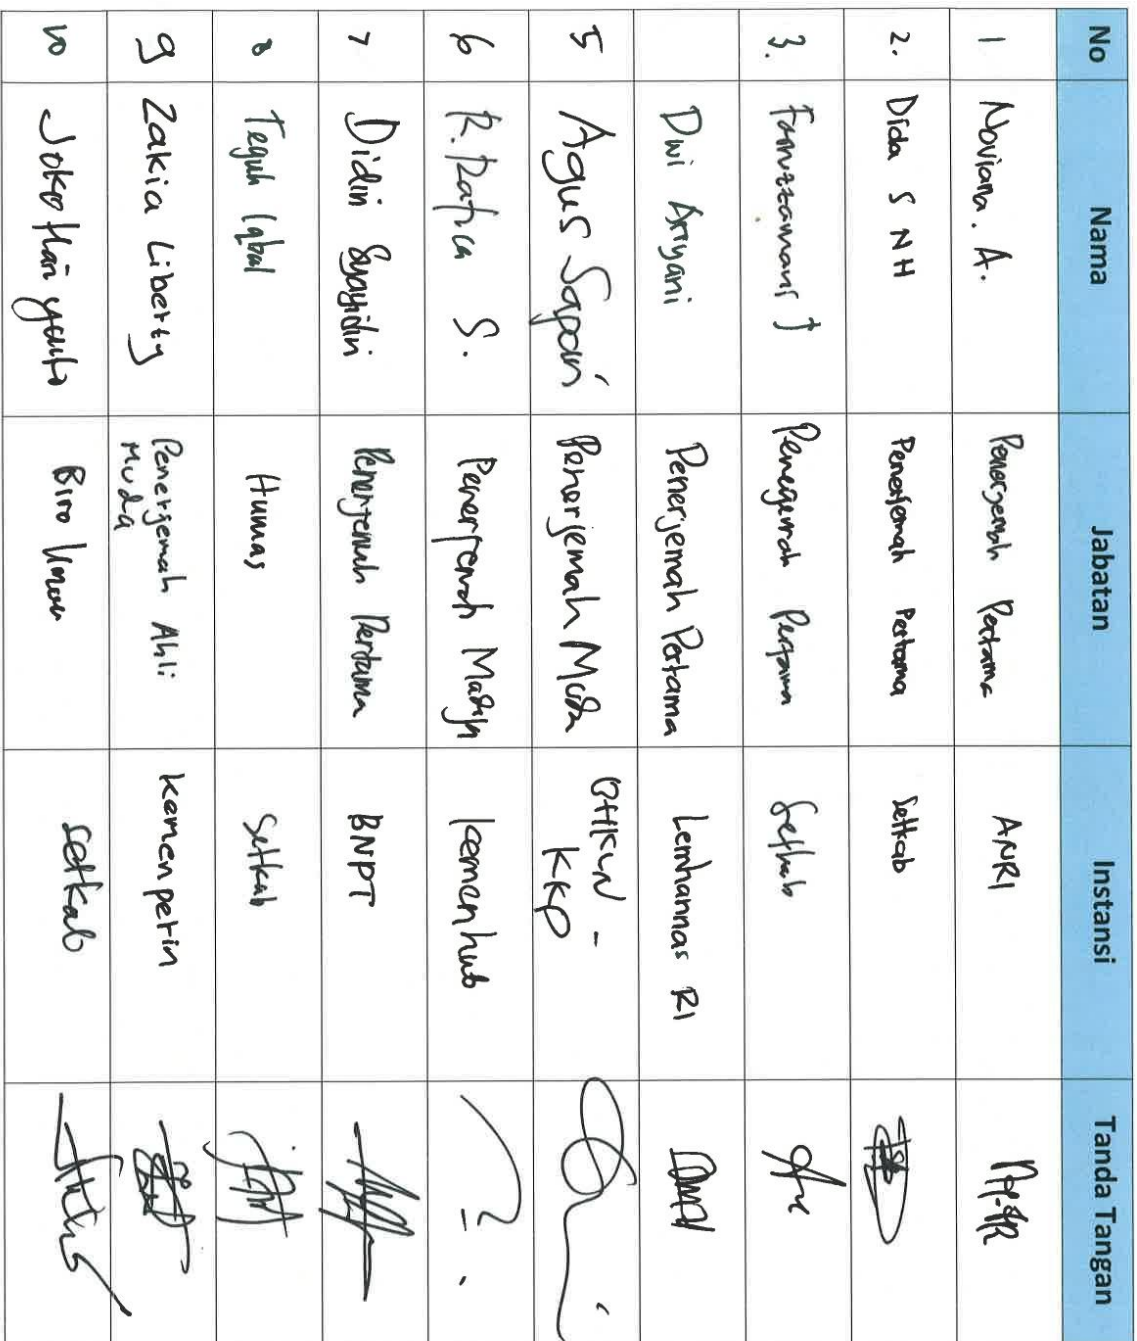 No Nama Jabatan Instansi Tanda Tangan
1 Noviana. A. Penerjemah Pertama ANRI
2. Dida S NH Penerjemah Pertama Setkab
3. Penerjemah Pertama Setkab
Dwi Aryani Penerjemah Pertama Lemhannas RI
5 Agus Sapari Penerjemah Muda
KKP
6 R. Rafica S. Penerjemah Madya Kemenhub
7 Didin Syayidin Penerjemah Pertama BNPT
8 Teguh Iqbal Humas Setkab
9 Zakia Liberty Penerjemah Ahli Kemenperin
Muda
10 Joko Hari Biro Umum Setkab